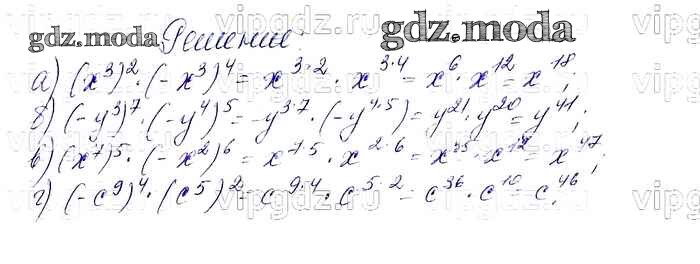 gdz.moda Решение: gdz.moda
а) (x³)² · (-x³)⁴ = x³·² · x³·⁴ = x⁶ · x¹² = x¹⁸;
б) (-y³)⁷ · (-y⁴)⁵ = -y³·⁷ · (-y⁴·⁵) = y²¹ · y²⁰ = y⁴¹;
в) (x⁷)⁵ · (-x²)⁶ = x⁷·⁵ · x²·⁶ = x³⁵ · x¹² = x⁴⁷;
г) (-c⁹)⁴ · (c⁵)² = c⁹·⁴ · c⁵·² = c³⁶ · c¹⁰ = c⁴⁶.